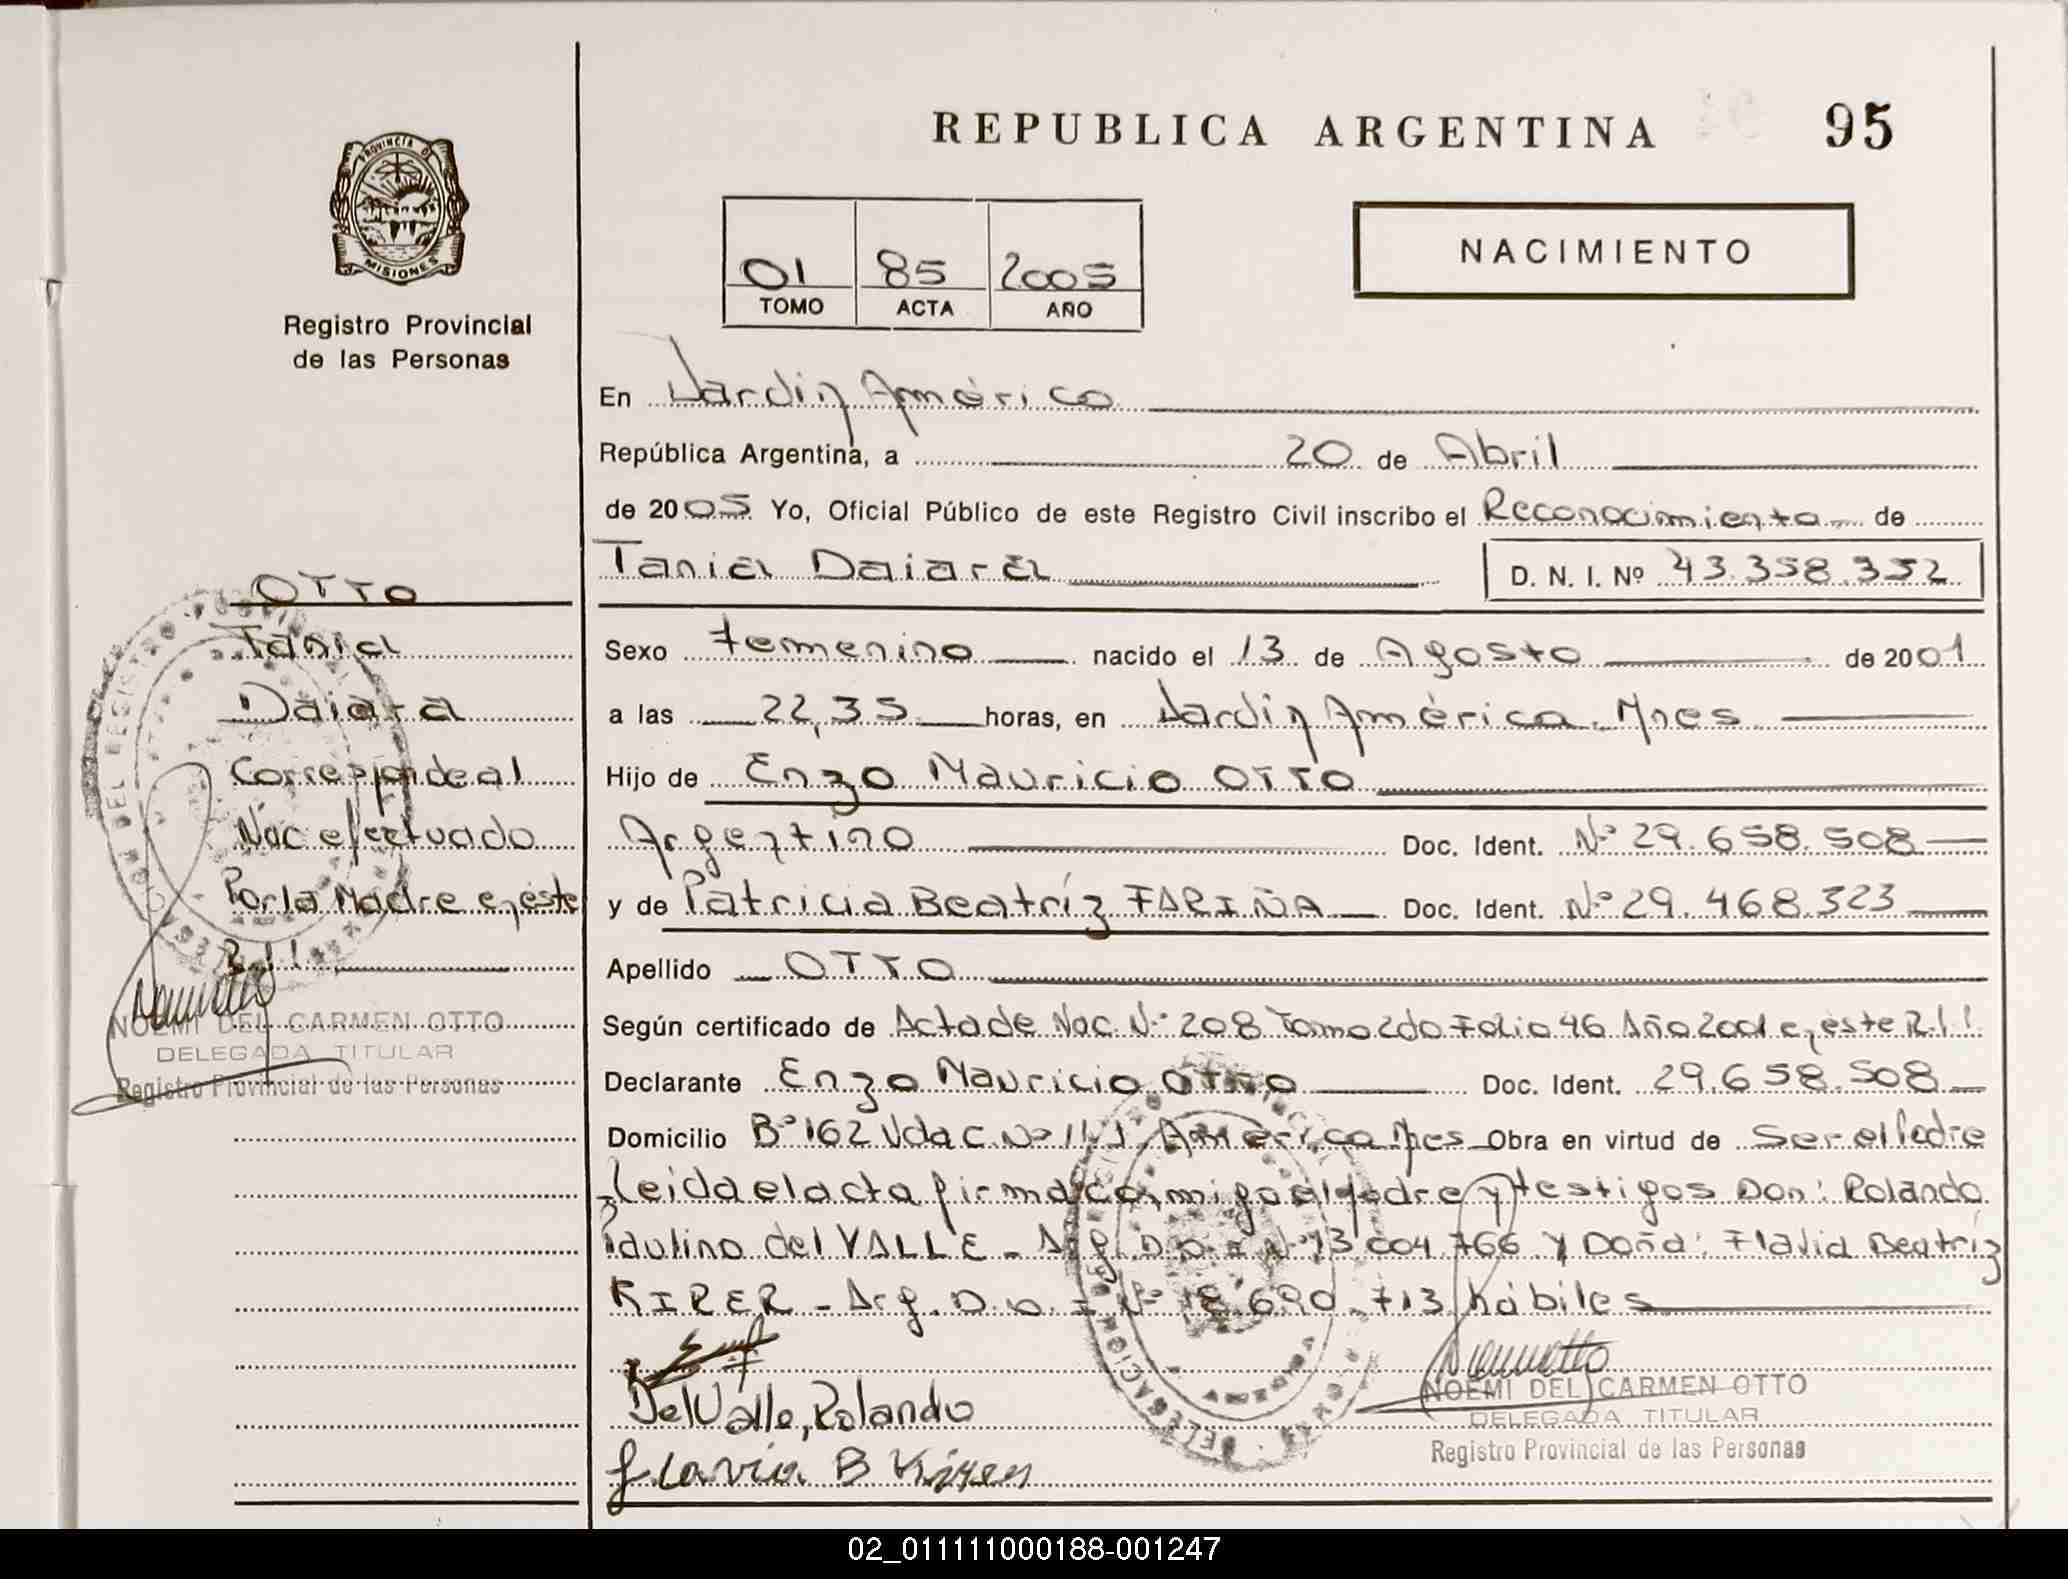 REPUBLICA ARGENTINA 95
PROVINCIA DE
MISIONES
Registro Provincial
de las Personas
01 85 2005
TOMO ACTA AÑO
NACIMIENTO
En Jardin América
República Argentina, a 20 de Abril
de 2005 Yo, Oficial Público de este Registro Civil inscribo el Reconocimiento de
Tania Daiara D. N. I. Nº 43.358.352
Sexo Femenino nacido el 13 de Agosto de 2001
a las 22,35 horas, en Jardin América Mnes
Hijo de Enzo Mauricio OTTO
Argentino Doc. Ident. Nº 29.658.508
y de Patricia Beatríz FARIÑA Doc. Ident. Nº 29.468.323
Apellido OTTO
Según certificado de Acta de Nac. Nº 208 Tomo 2do Folio 46 Año 2001 en este R.
Declarante Enzo Mauricio OTTO Doc. Ident. 29.658.508
Domicilio Bº 162 Vdac Nº América Mnes Obra en virtud de Ser el Padre
Leida el acta firma conmigo el padre y testigos Don: Rolando
Paulino del VALLE - Arg. D.N.I Nº 13 004 766 y Doña: Flavia Beatríz
KIRER - Arg. D.N.I Nº 690.713 Hábiles
DelValle, Rolando
Flavia B Kirer
NOEMI DEL CARMEN OTTO
DELEGADA TITULAR
Registro Provincial de las Personas
OTTO
Tania
Daiara
Corresponde al
Nac efectuado
Por la Madre en este
NOEMI DEL CARMEN OTTO
DELEGADA TITULAR
Registro Provincial de las Personas
02_011111000188-001247